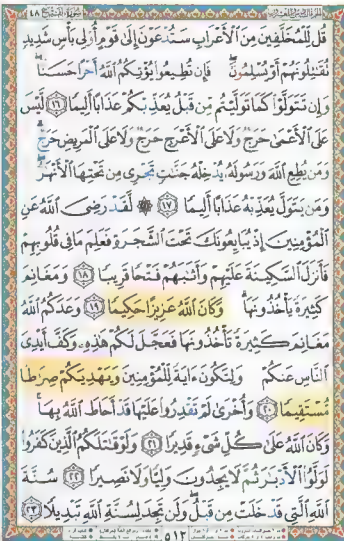 ٤٨
قُل لِّلْمُخَلَّفِينَ مِنَ الْأَعْرَابِ سَتُدْعَوْنَ إِلَىٰ قَوْمٍ أُولِي بَأْسٍ شَدِيدٍ
تُقَاتِلُونَهُمْ أَوْ يُسْلِمُونَ ۖ فَإِن تُطِيعُوا يُؤْتِكُمُ اللَّهُ أَجْرًا حَسَنًا ۖ
وَإِن تَتَوَلَّوْا كَمَا تَوَلَّيْتُم مِّن قَبْلُ يُعَذِّبْكُمْ عَذَابًا أَلِيمًا ﴿١٦﴾ لَّيْسَ
عَلَى الْأَعْمَىٰ حَرَجٌ وَلَا عَلَى الْأَعْرَجِ حَرَجٌ وَلَا عَلَى الْمَرِيضِ حَرَجٌ ۗ
وَمَن يُطِعِ اللَّهَ وَرَسُولَهُ يُدْخِلْهُ جَنَّاتٍ تَجْرِي مِن تَحْتِهَا الْأَنْهَارُ ۖ
وَمَن يَتَوَلَّ يُعَذِّبْهُ عَذَابًا أَلِيمًا ﴿١٧﴾ ۞ لَّقَدْ رَضِيَ اللَّهُ عَنِ
الْمُؤْمِنِينَ إِذْ يُبَايِعُونَكَ تَحْتَ الشَّجَرَةِ فَعَلِمَ مَا فِي قُلُوبِهِمْ
فَأَنزَلَ السَّكِينَةَ عَلَيْهِمْ وَأَثَابَهُمْ فَتْحًا قَرِيبًا ﴿١٨﴾ وَمَغَانِمَ
كَثِيرَةً يَأْخُذُونَهَا ۗ وَكَانَ اللَّهُ عَزِيزًا حَكِيمًا ﴿١٩﴾ وَعَدَكُمُ اللَّهُ
مَغَانِمَ كَثِيرَةً تَأْخُذُونَهَا فَعَجَّلَ لَكُمْ هَٰذِهِ وَكَفَّ أَيْدِيَ
النَّاسِ عَنكُمْ وَلِتَكُونَ آيَةً لِّلْمُؤْمِنِينَ وَيَهْدِيَكُمْ صِرَاطًا
مُّسْتَقِيمًا ﴿٢٠﴾ وَأُخْرَىٰ لَمْ تَقْدِرُوا عَلَيْهَا قَدْ أَحَاطَ اللَّهُ بِهَا ۚ
وَكَانَ اللَّهُ عَلَىٰ كُلِّ شَيْءٍ قَدِيرًا ﴿٢١﴾ وَلَوْ قَاتَلَكُمُ الَّذِينَ كَفَرُوا
لَوَلَّوُا الْأَدْبَارَ ثُمَّ لَا يَجِدُونَ وَلِيًّا وَلَا نَصِيرًا ﴿٢٢﴾ سُنَّةَ
اللَّهِ الَّتِي قَدْ خَلَتْ مِن قَبْلُ ۖ وَلَن تَجِدَ لِسُنَّةِ اللَّهِ تَبْدِيلًا ﴿٢٣﴾
٥١٣